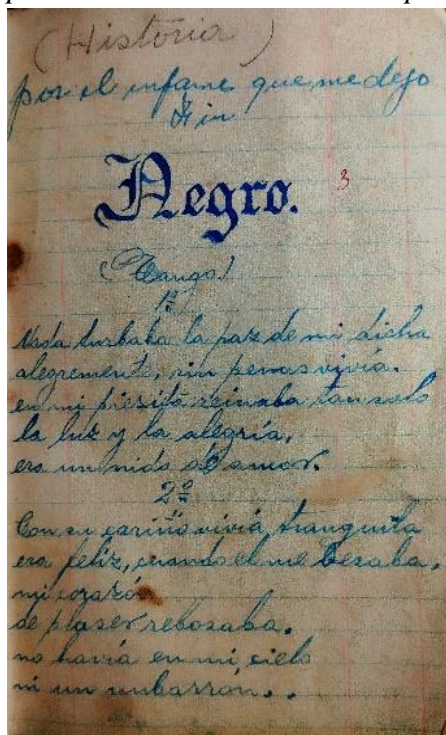 (Historia)
por el infame que me dejo
Fin
Negro. 3
(Tango)
1ª
Nada turbaba la paz de mi dicha
alegremente, sin penas vivía.
en mi piesita reinaba tan solo
la luz y la alegría,
era un nido de amor.
2ª
Con su cariño vivía tranquila
era feliz, cuando el me besaba,
mi corazón
de plaser rebosaba.
no havía en mi cielo
ni un nubarrón..